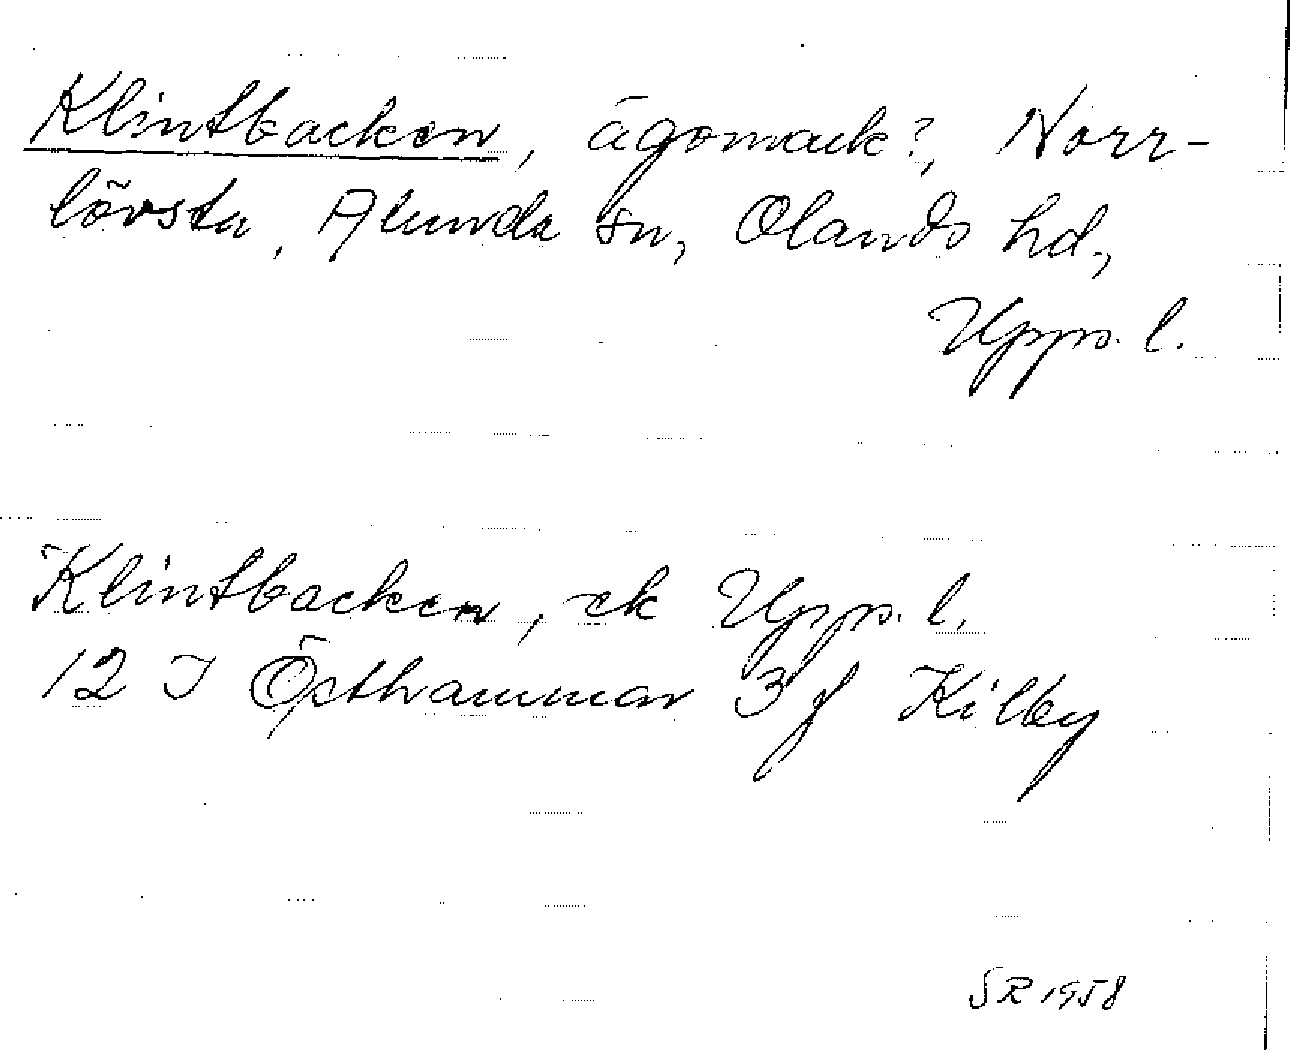 Klintbacken, ägomark?, Norr-
lövsta, Alunda sn, Olands hd.,
Upps. l.
Klintbacken, ek Upps. l.
12 I Östhammar 3 f Kilby
SR 1958